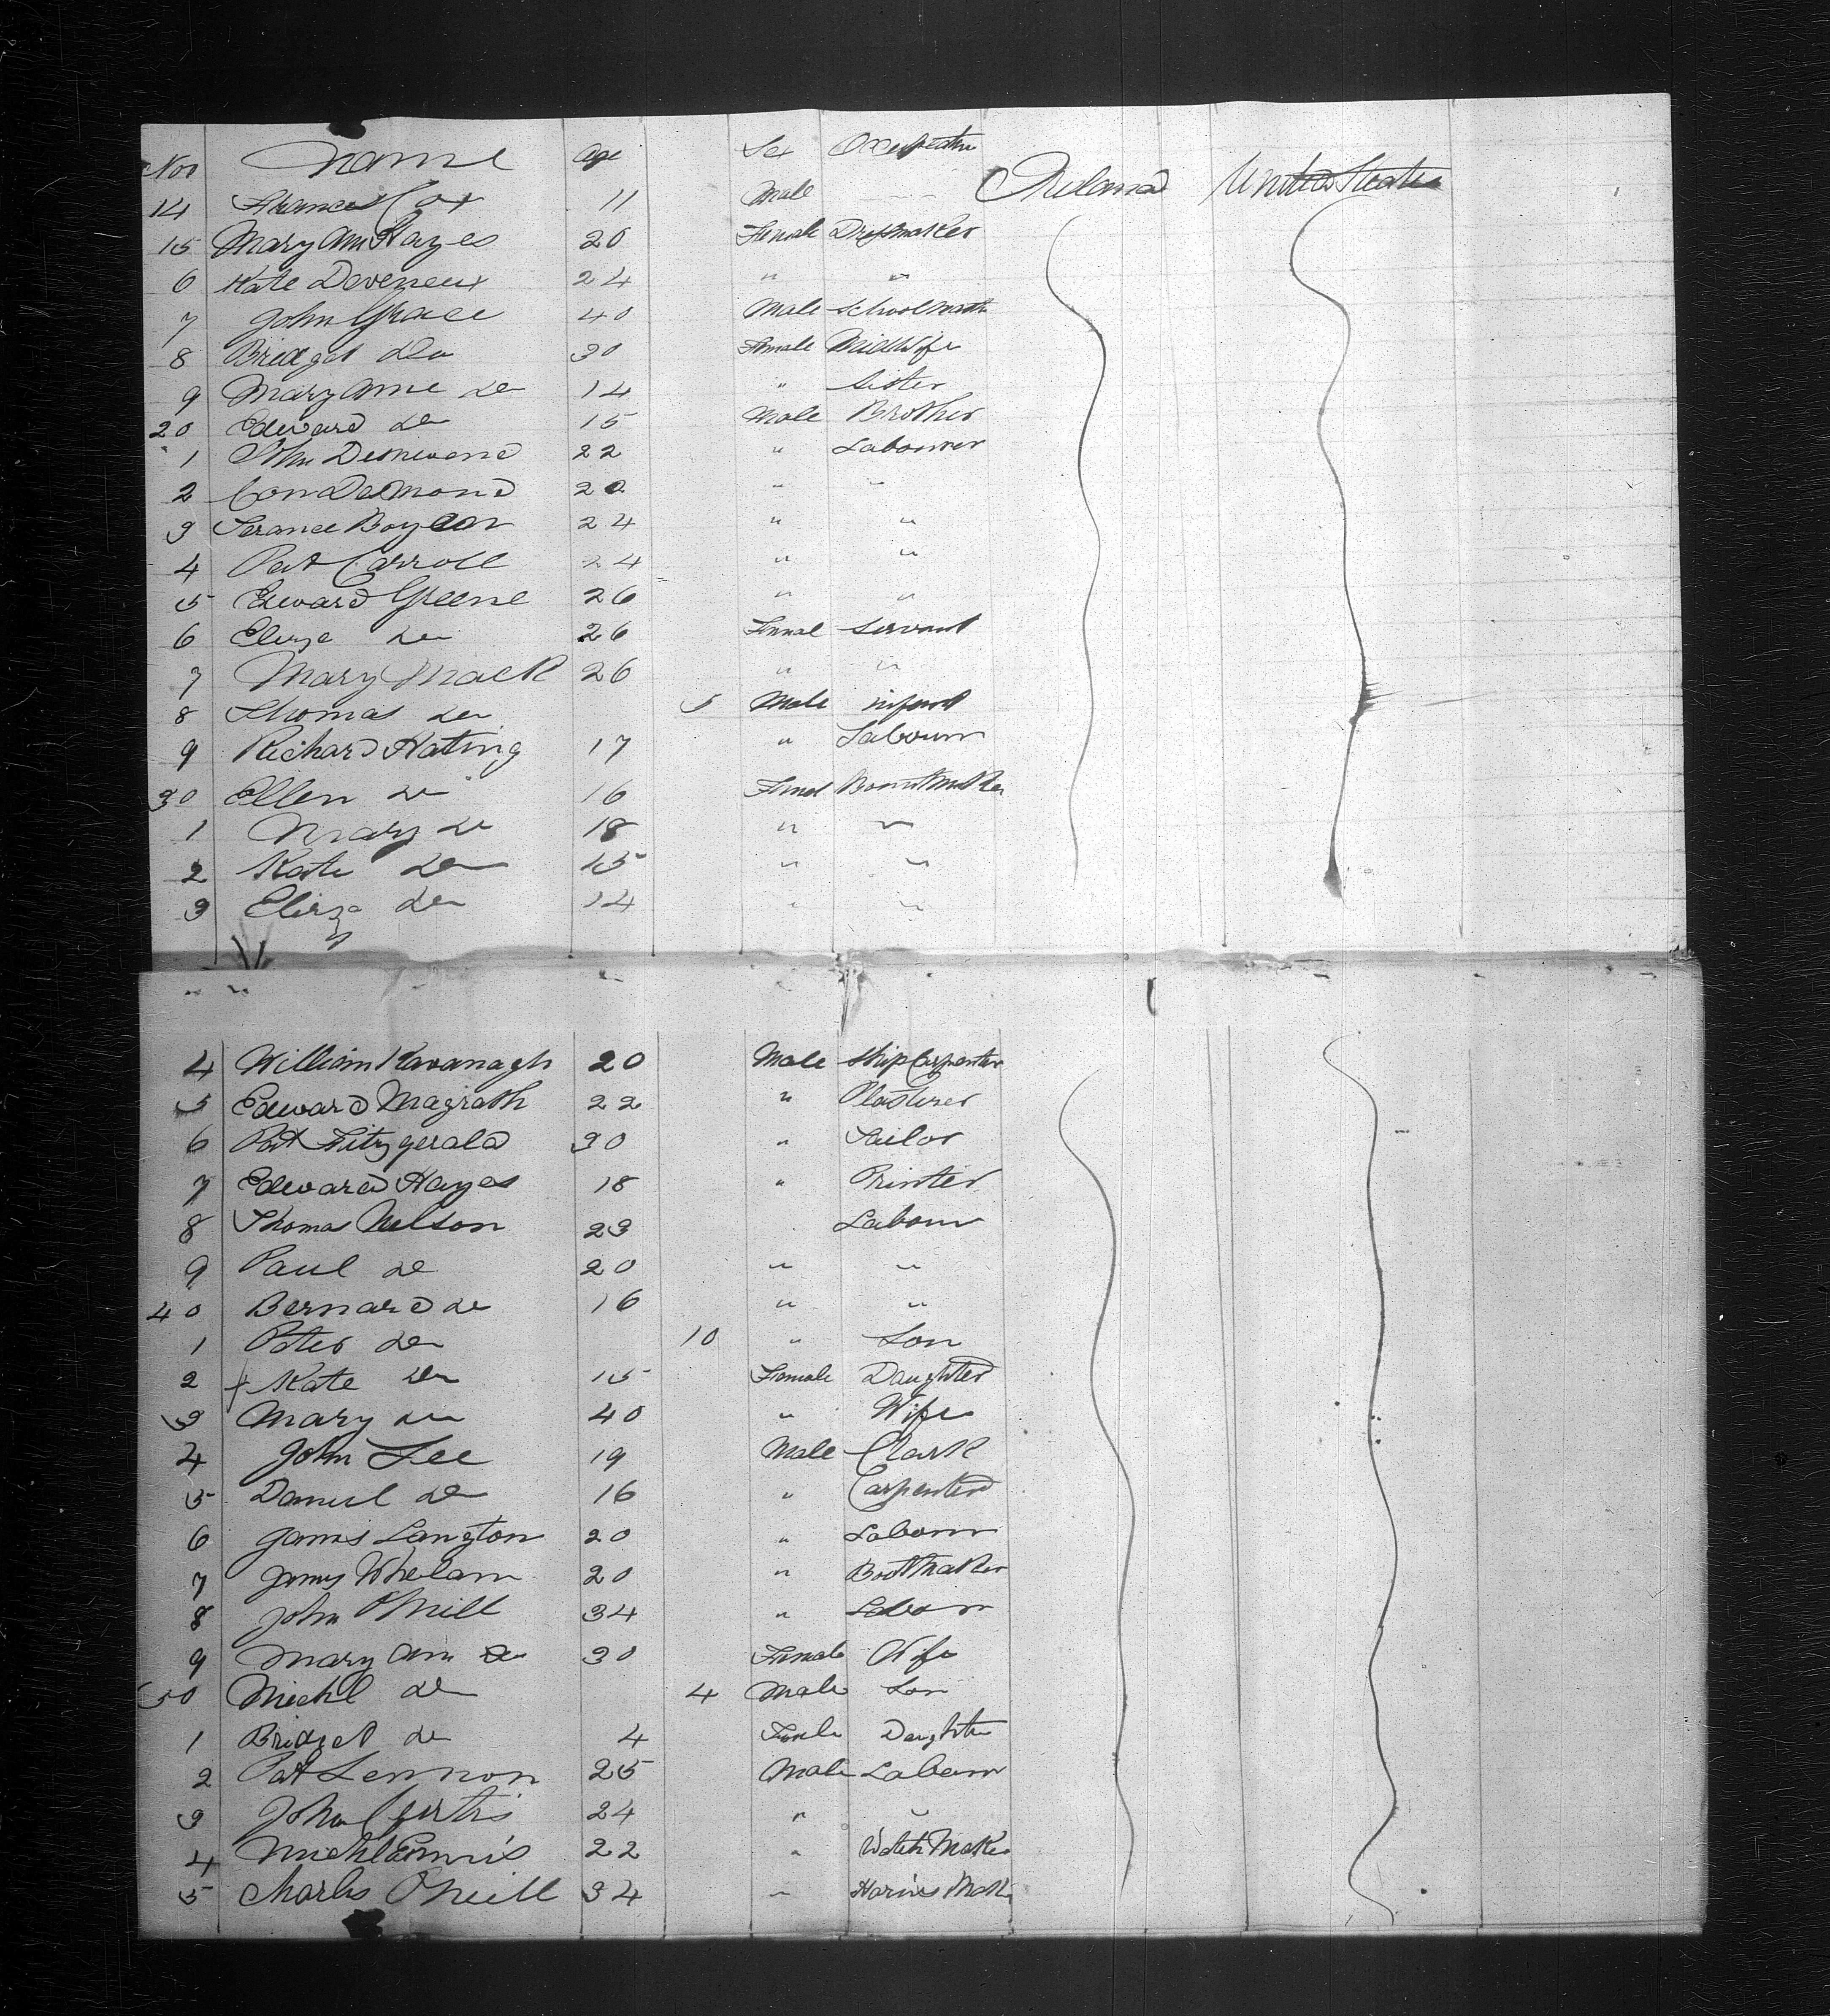 Nos Name Age Sex Occupation
14 Frances Cox 11 Male Ireland United States
15 Mary Ann Hayes 20 Female Dressmaker
6 Kate Devereux 24 " "
7 John Grace 40 Male School
8 Bridget do 30 Female Midwife
9 Mary Anne do 14 " Sister
20 Edward do 15 Male Brother
1 John 22 " Labourer
2 Con Desmond 20 " "
3 Terance Boylan 24 " "
4 Pat Carroll 24 " "
5 Edward Greene 26 " "
6 Eliza do 26 Femal Servant
7 Mary Mack 26 " "
8 Thomas do 5 Male infant
9 Richard Kating 17 " Labourer
30 Ellen do 16 Femal
1 Mary do 18 " "
2 Kate do 15 " "
3 Eliza do 14 " "
4 William Kavanagh 20 Male Ship Carpenter
5 Edward Magrath 22 " Plasterer
6 Pat Fitzgerald 30 "
7 Edward Hayes 18 " Printer
8 Thomas Nelson 23 Labour
9 Paul do 20 " "
40 Bernard do 16 " "
1 Peter do 10 " Son
2 + Kate do 15 Female Daughter
3 Mary do 40 " Wife
4 John Lee 19 Male Clark
5 Daniel do 16 " Carpenter
6 James Langton 20 " Labour
7 James Whelan 20 " Bootmaker
8 John O'Neill 34 " Labour
9 Mary Ann do 30 Female Wife
50 Michl do 4 Male Son
1 Bridget do 4 Female Daughter
2 Pat Lennon 25 Male Labour
3 John Curtis 24 " "
4 Michl 22 " Watch Maker
5 Charles O'Neill 34 " Harness Maker